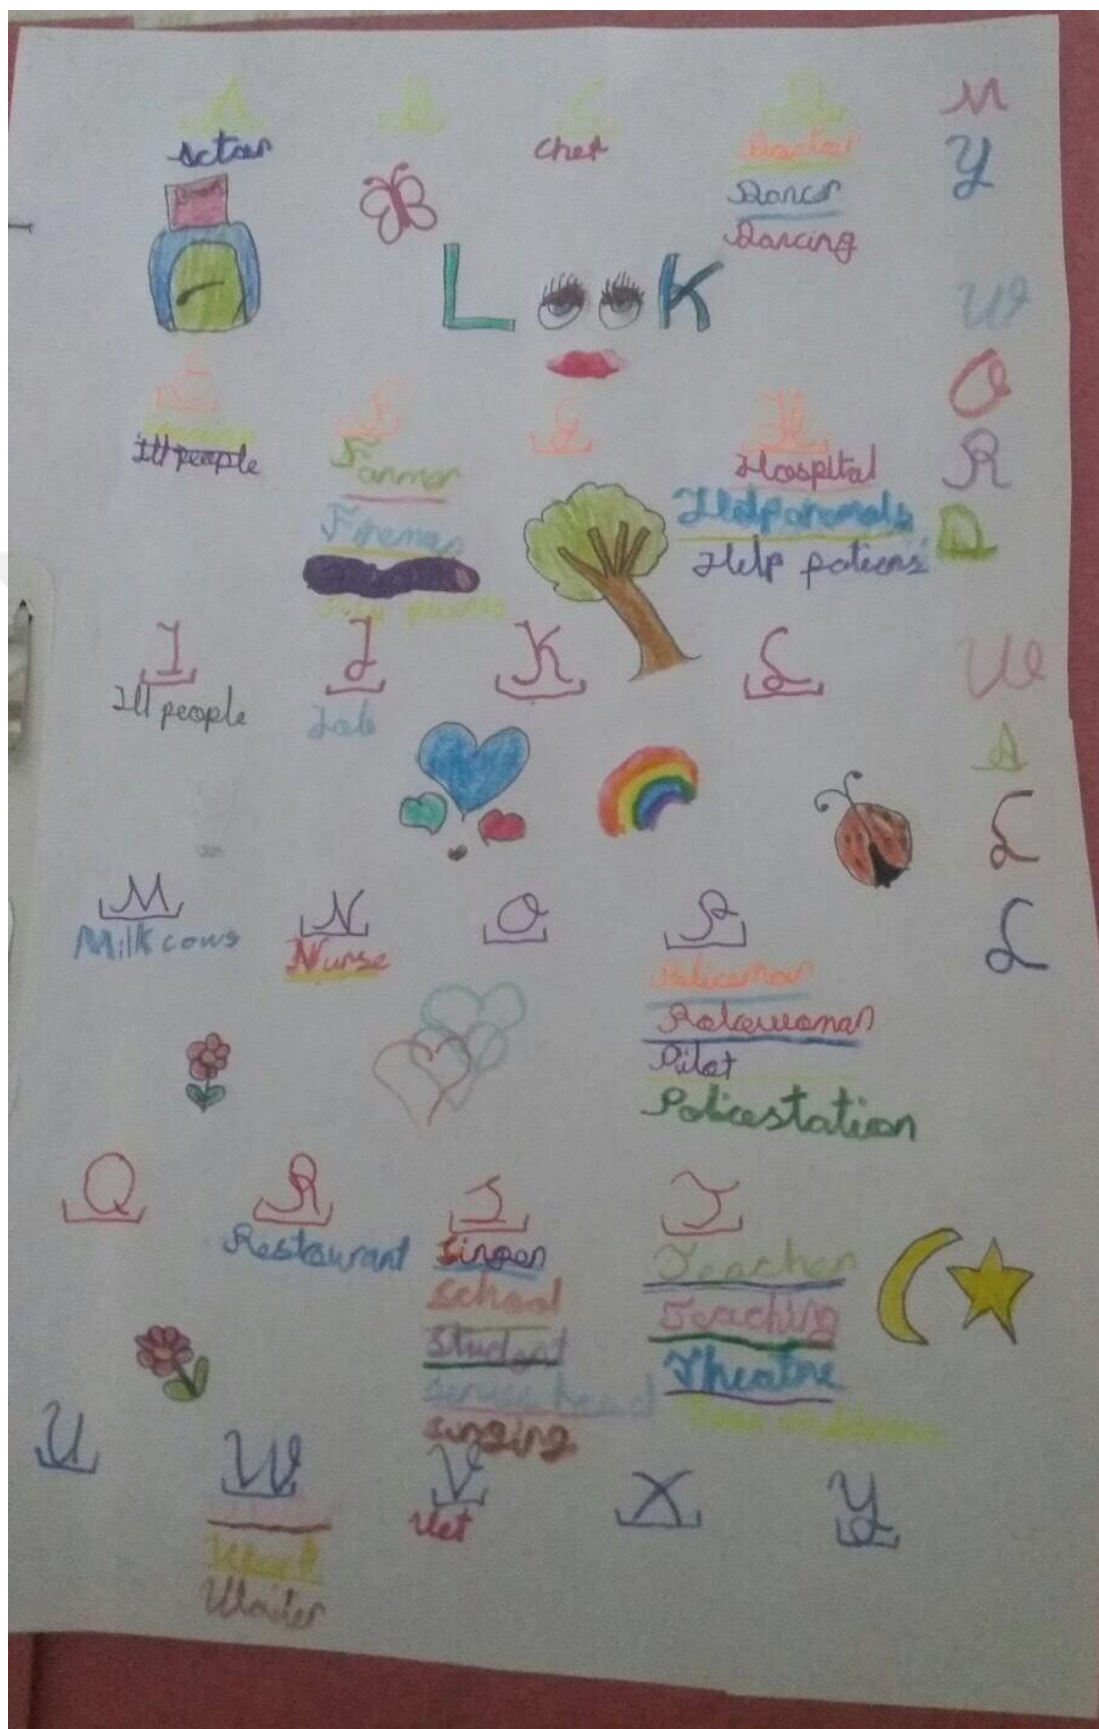 A B C D
Actor
Chef
Doctor
Dancer
Dancing
MY
WORD
WALL
LOOK
E F G H
Ill people
Farmer
Fireman
Hospital
Help animals
Help patiens
I J K L
Ill people
Job
M N O P
Milk cows
Nurse
Policeman
Policewoman
Pilot
Policestation
Q R S T
Restaurant
Singer
School
Student
Singing
Teacher
Teaching
Theatre
U W V X Y
Work
Waiter
Vet